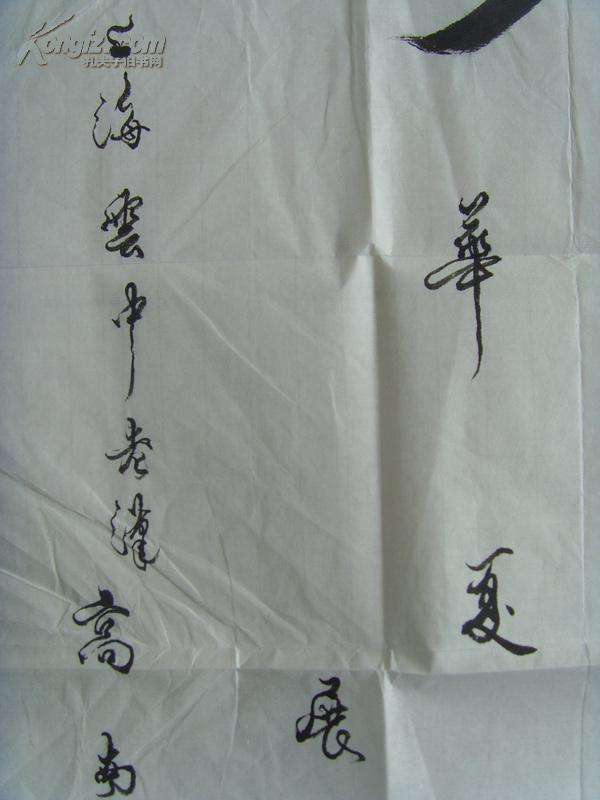 華夏
展
上海雲中老漢高南
Kongfz.com
孔夫子旧书网